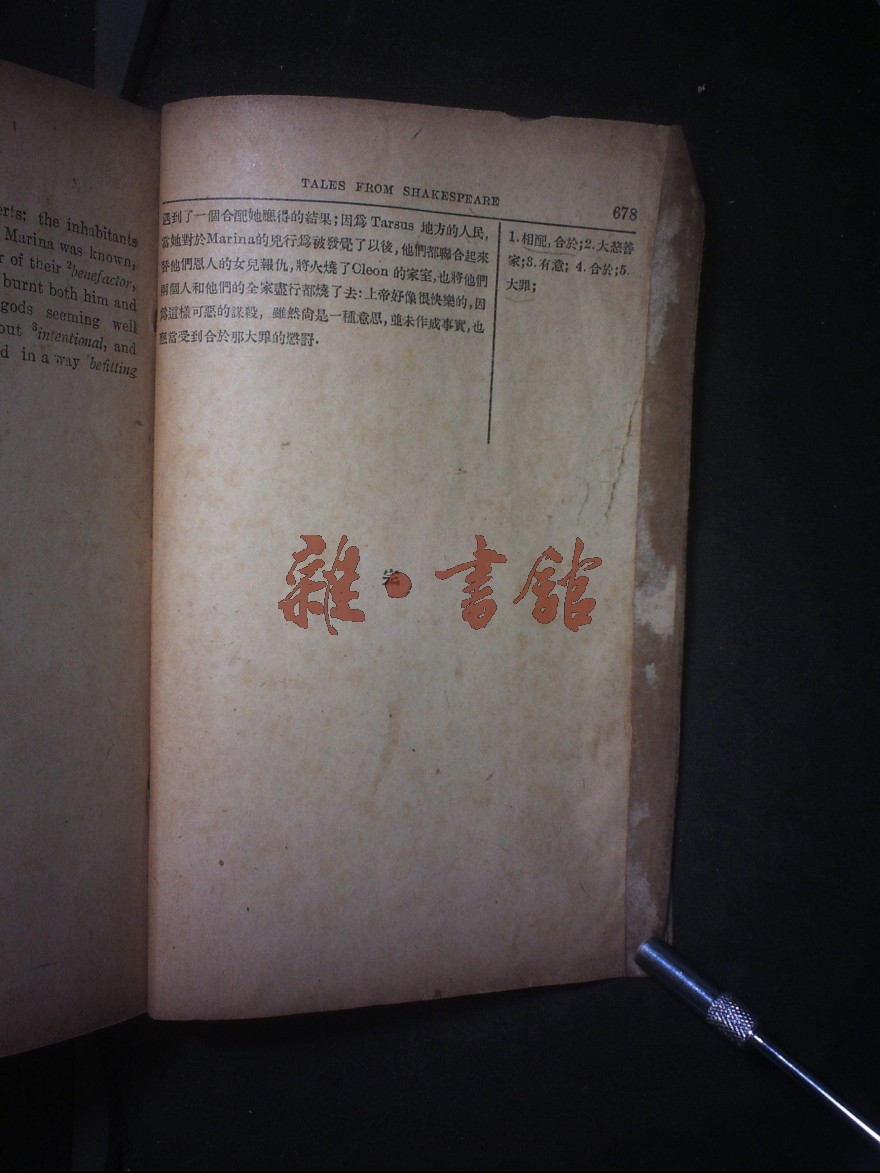 erts; the inhabitants
Marina was known,
r of their ²benefactor,
burnt both him and
gods seeming well
out ³intentional, and
d in a way ⁴befitting
TALES FROM SHAKESPEARE
678
遇到了一個合配她應得的結果;因爲 Tarsus 地方的人民,
當她對於Marina的兇行爲被發覺了以後,他們都聯合起來
替他們恩人的女兒報仇,將火燒了Cleon 的家室,也將他們
兩個人和他們的全家盡行都燒了去:上帝好像很快樂的,因
爲這樣可惡的謀殺,雖然尙是一種意思,並未作成事實,也
應當受到合於那大罪的懲罰.
1.相配,合於;2.大慈善
家;3.有意; 4.合於;5.
大罪;
完
雜·書館